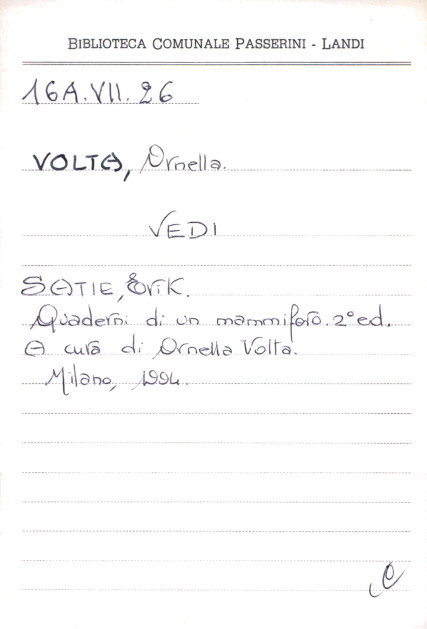 BIBLIOTECA COMUNALE PASSERINI - LANDI
16A.VII.26
VOLTA, Ornella.
VEDI
SATIE, Erik.
Quaderni di un mammifero. 2° ed.
A cura di Ornella Volta.
Milano, 1994.